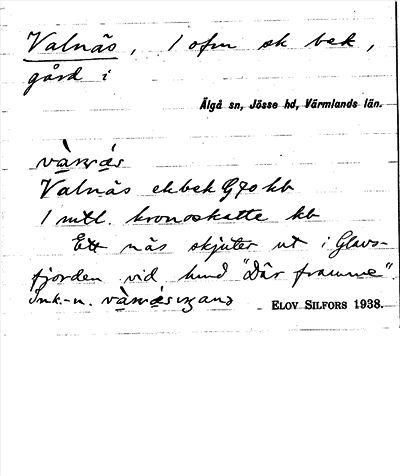 Valnäs, 1 ofm ek bek,
gård i
Älgå sn, Jösse hd, Värmlands län.
Valnäs ekbek G70 kb
1 mtl. kronoskatte kb
Ett näs skjuter ut i Glavs-
fjorden vid hmd "Där framme".
Ink.-n.
ELOV SILFORS 1938.